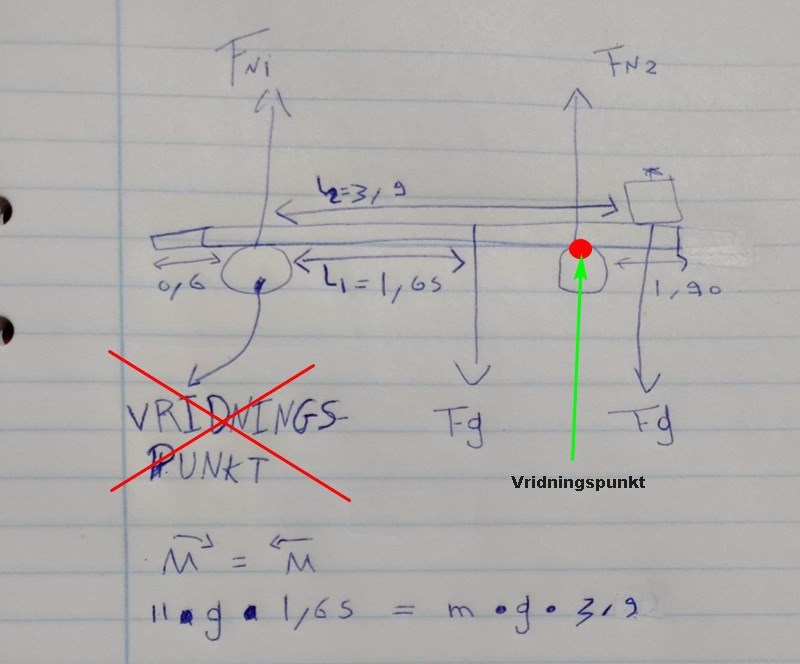 FN1
FN2
L2=3,9
0,6
L1=1,65
1,90
VRIDNINGS-
PUNKT
Fg
Fg
Vridningspunkt
M = M
11 • g • 1,65 = m • g • 3,9